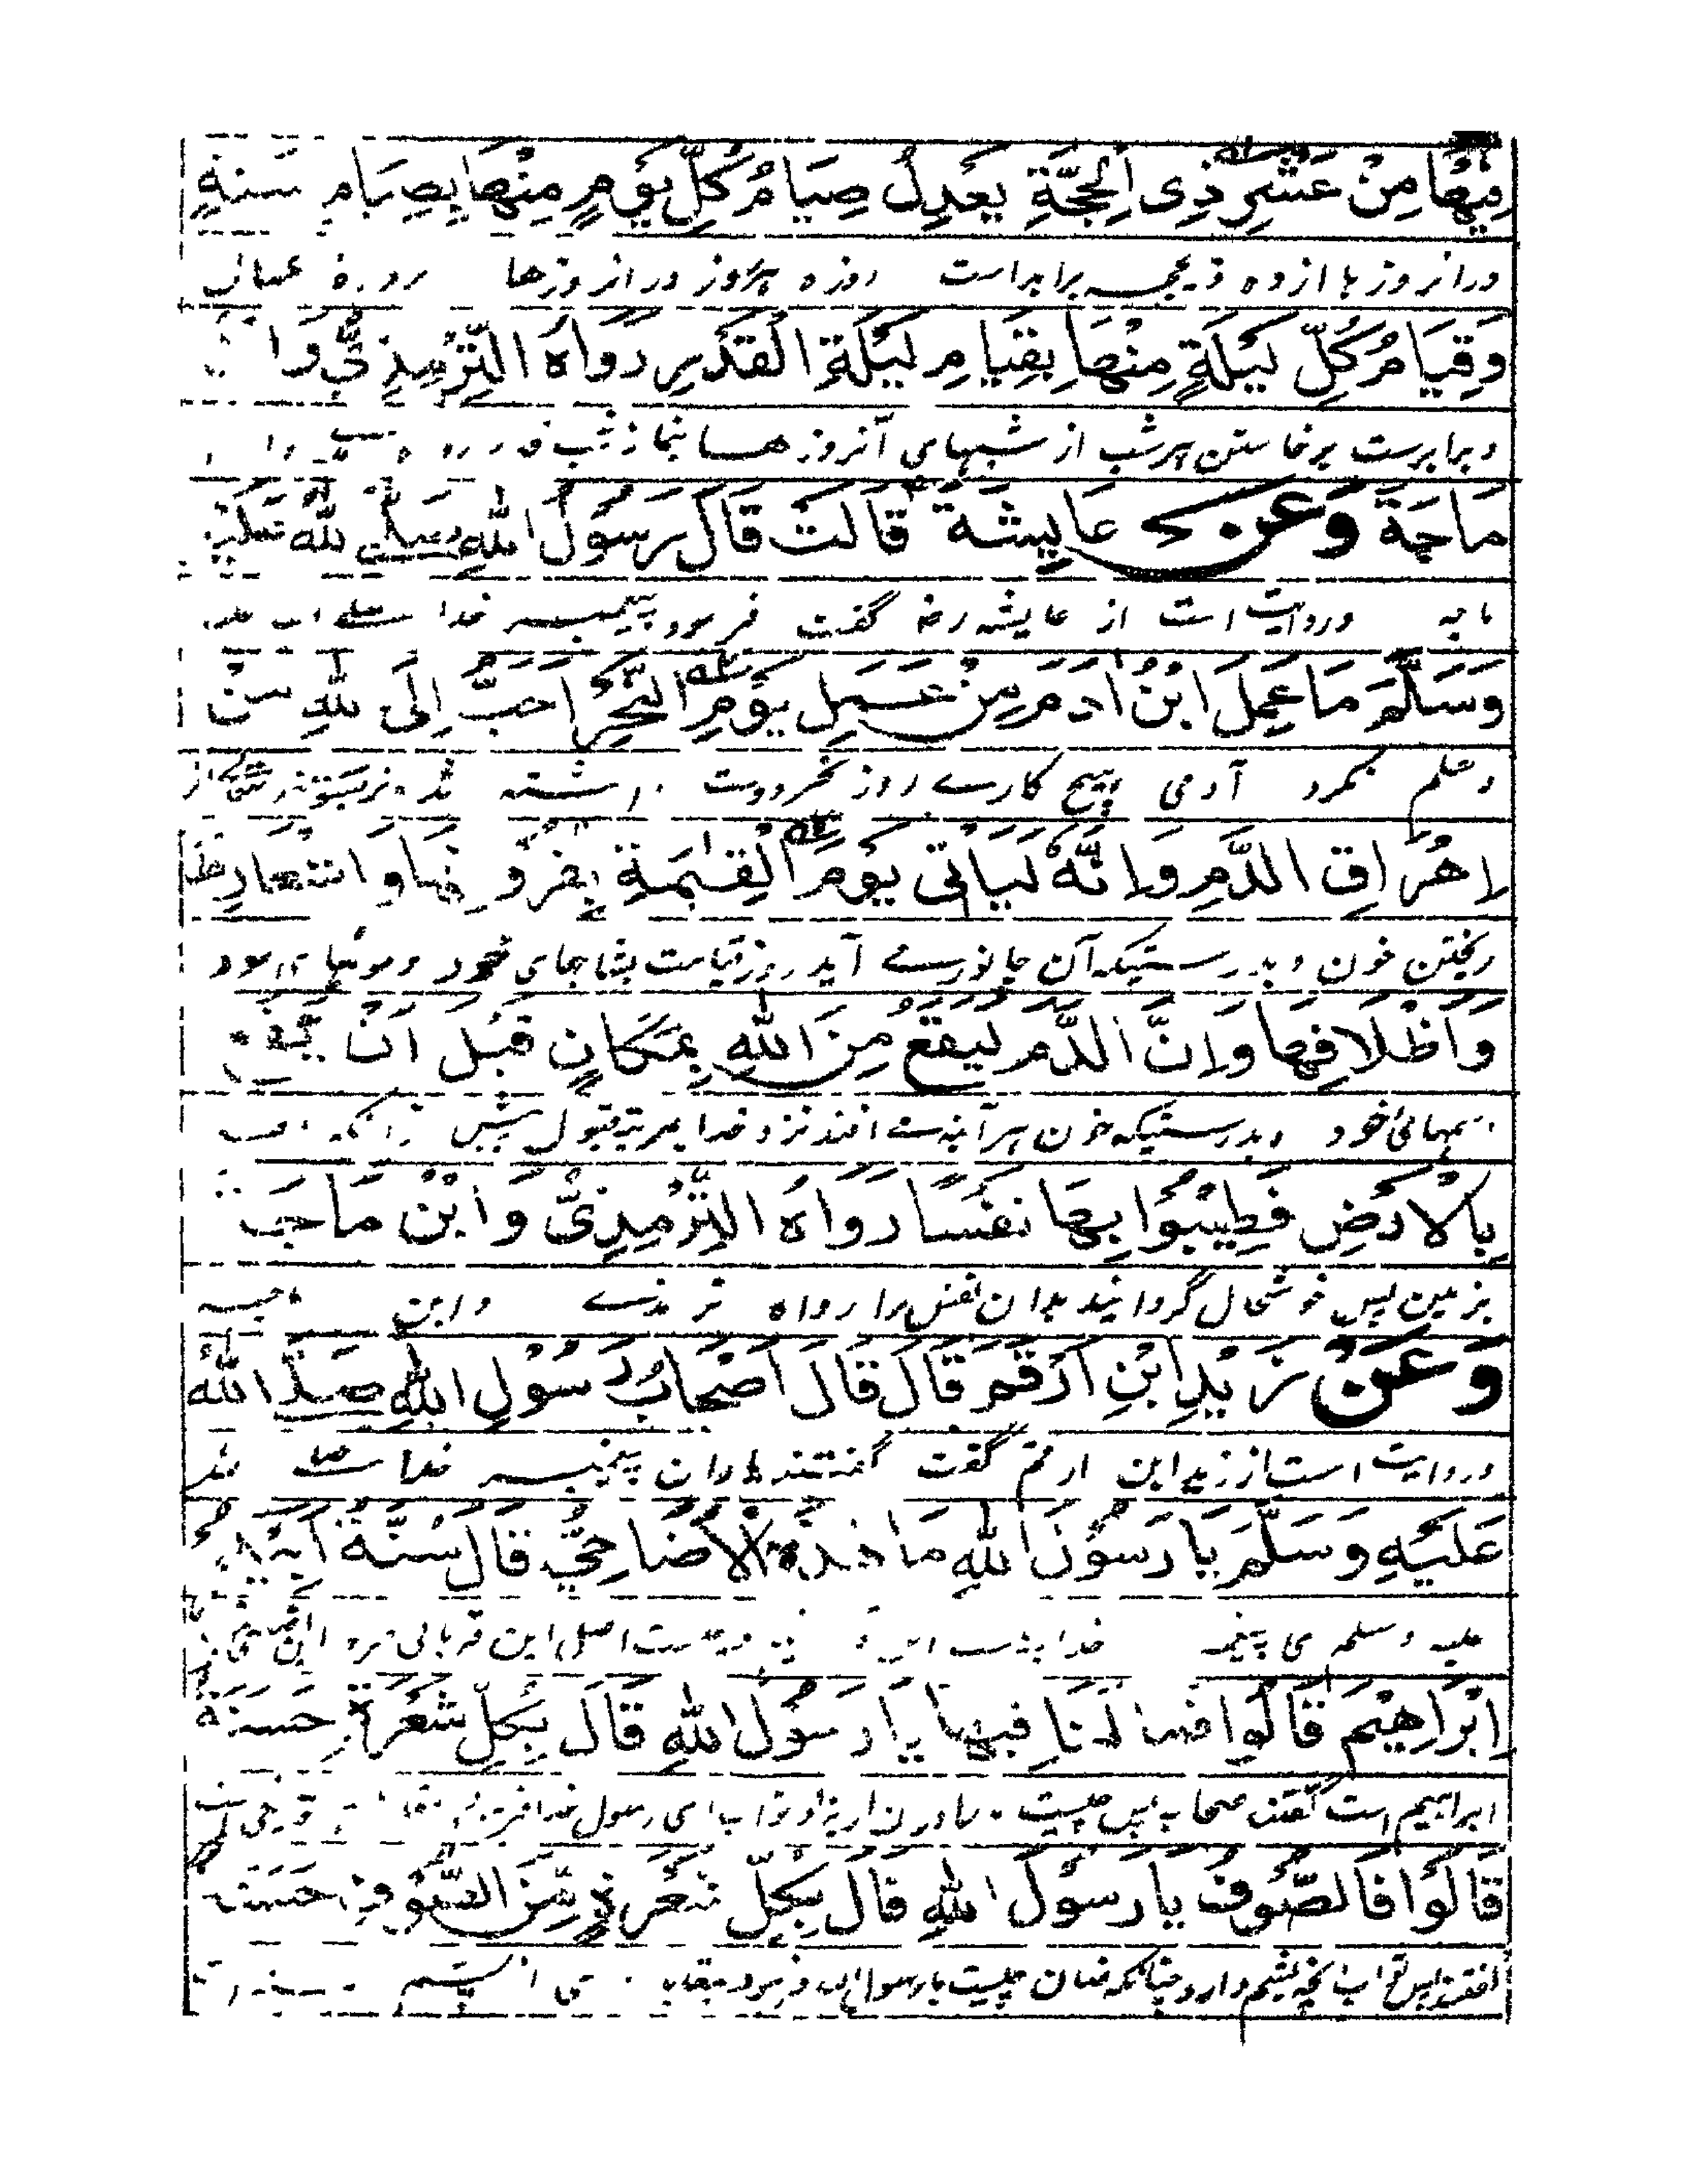 فِيْهَا مِنْ عَشْرِ ذِى الْحِجَّةِ يَعْدِلُ صِيَامُ كُلِّ يَوْمٍ مِنْهَا بِصِيَامِ سَنَةٍ
در انروزها از ده ذیحجه برابر است روزه هرروز در انروزها
وَقِيَامُ كُلِّ لَيْلَةٍ مِنْهَا بِقِيَامِ لَيْلَةِ الْقَدْرِ رَوَاهُ التِّرْمِذِىُّ وَا
و برابرست برخاستن هرشب از شبهای آنروزها بنماز شب قدر
مَاجَةَ وَعَنْ عَايِشَةَ قَالَتْ قَالَ رَسُوْلُ اللهِ صَلَّى اللهُ عَلَيْهِ
ماجه و روایت است از عایشه رضہ گفت فرمود پیغمبر خدا صلے
وَسَلَّمَ مَا عَمِلَ ابْنُ اٰدَمَ مِنْ عَمَلٍ يَوْمَ النَّحْرِ اَحَبَّ اِلَى اللهِ مِنْ
وسلم نکرد آدمی هیچ کارے روز نحر دوست
اِهْرَاقِ الدَّمِ وَاِنَّهُ لَيَأْتِى يَوْمَ الْقِيٰمَةِ بِقُرُوْنِهَا وَاشْعَارِهَا
ریختن خون و بدرستیکه آن جانورے آید روز قیامت بشاخهای خود و مویهای خود
وَاَظْلَافِهَا وَاِنَّ الدَّمَ لَيَقَعُ مِنَ اللهِ بِمَكَانٍ قَبْلَ اَنْ يَقَعَ
سمهائی خود و بدرستیکه خون هرآینه می افتد نزد خدا بمرتبه قبول پیش
بِالْاَرْضِ فَطِيْبُوْا بِهَا نَفْسًا رَوَاهُ التِّرْمِذِىُّ وَابْنُ مَاجَةَ
بزمین پس خوشحال گردانید بدان نفس را رواه ترمذے وابن ماجه
وَعَنْ زَيْدِ ابْنِ اَرْقَمَ قَالَ قَالَ اَصْحَابُ رَسُوْلِ اللهِ صَلَّى اللهُ
و روایت است از زید ابن ارقم گفت گفتند یاران پیغمبر خدا صلے
عَلَيْهِ وَسَلَّمَ يَا رَسُوْلَ اللهِ مَا هٰذِهِ الْاَضَاحِىُّ قَالَ سُنَّةُ اَبِيْكُمْ
علیه وسلم ای پیغمبر خدا اصل این قربانی
اِبْرَاهِيْمَ قَالُوْا فَمَا لَنَا فِيْهَا يَا رَسُوْلَ اللهِ قَالَ بِكُلِّ شَعْرَةٍ حَسَنَةٌ
ابراهیم است گفتند صحابه پس چیست ای رسول خدا
قَالُوْا فَالصُّوْفُ يَا رَسُوْلَ اللهِ قَالَ بِكُلِّ شَعْرَةٍ مِّنَ الصُّوْفِ حَسَنَة
گفتند پس ثواب آنچه پشم دارد چنانکه ضان چیست یا رسول الله فرمود